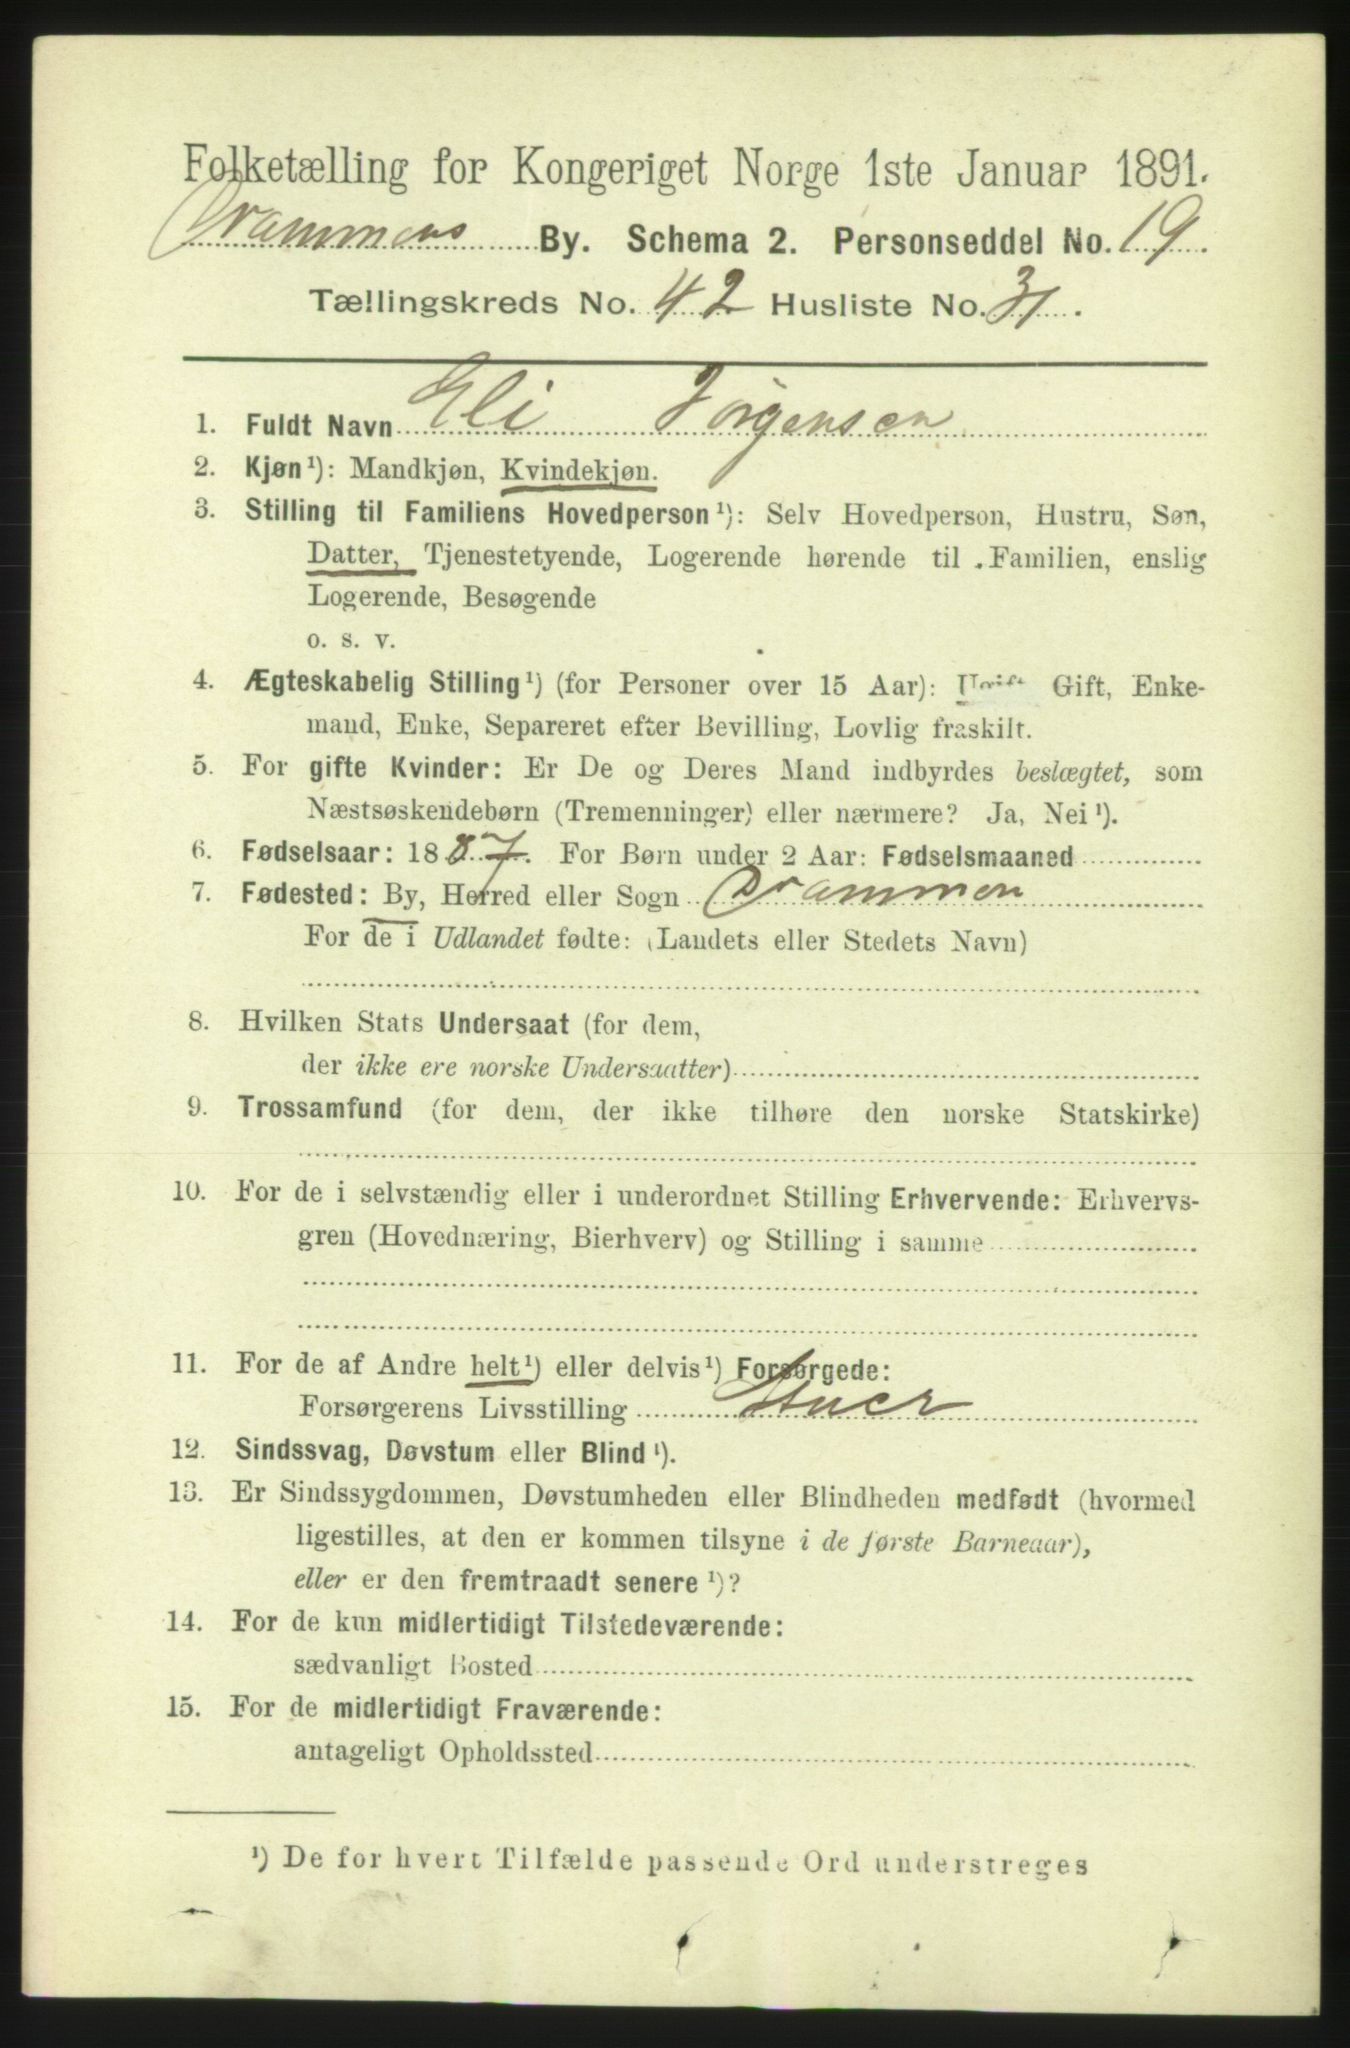 Folketælling for Kongeriget Norge 1ste Januar 1891.
Drammens By. Schema 2. Personseddel No. 19.
Tællingskreds No. 42 Husliste No. 31.
1. Fuldt Navn Eli Jørgensen
2. Kjøn¹): Mandkjøn, Kvindekjøn.
3. Stilling til Familiens Hovedperson¹): Selv Hovedperson, Hustru, Søn,
Datter, Tjenestetyende, Logerende hørende til Familien, enslig
Logerende, Besøgende
o. s. v.
4. Ægteskabelig Stilling¹) (for Personer over 15 Aar): Ugift, Gift, Enke-
mand, Enke, Separeret efter Bevilling, Lovlig fraskilt.
5. For gifte Kvinder: Er De og Deres Mand indbyrdes beslægtet, som
Næstsøskendebørn (Tremenninger) eller nærmere? Ja, Nei¹).
6. Fødselsaar: 1887. For Børn under 2 Aar: Fødselsmaaned
7. Fødested: By, Herred eller Sogn Drammen
For de i Udlandet fødte: (Landets eller Stedets Navn)
8. Hvilken Stats Undersaat (for dem,
der ikke ere norske Undersaatter)
9. Trossamfund (for dem, der ikke tilhøre den norske Statskirke)
10. For de i selvstændig eller i underordnet Stilling Erhvervende: Erhvervs-
gren (Hovednæring, Bierhverv) og Stilling i samme
11. For de af Andre helt¹) eller delvis¹) Forsørgede:
Forsørgerens Livsstilling Stuer
12. Sindssvag, Døvstum eller Blind¹).
13. Er Sindssygdommen, Døvstumheden eller Blindheden medfødt (hvormed
ligestilles, at den er kommen tilsyne i de første Barneaar),
eller er den fremtraadt senere¹)?
14. For de kun midlertidigt Tilstedeværende:
sædvanligt Bosted
15. For de midlertidigt Fraværende:
antageligt Opholdssted
¹) De for hvert Tilfælde passende Ord understreges